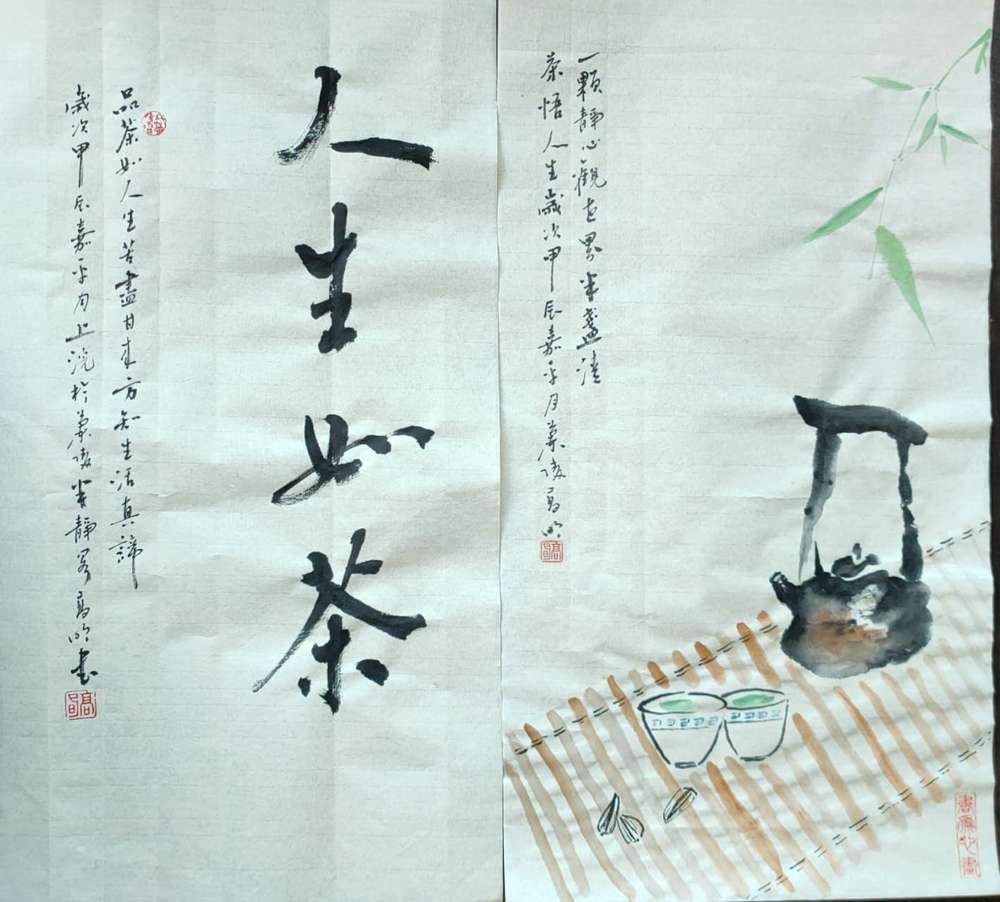 一顆靜心觀世界半盞清
茶悟人生歲次甲辰嘉平月茂陵高明
書為心畫
人生如茶
品茶如人生苦盡甘來方知生活真諦
歲次甲辰嘉平月上浣於茂陵半靜高明書